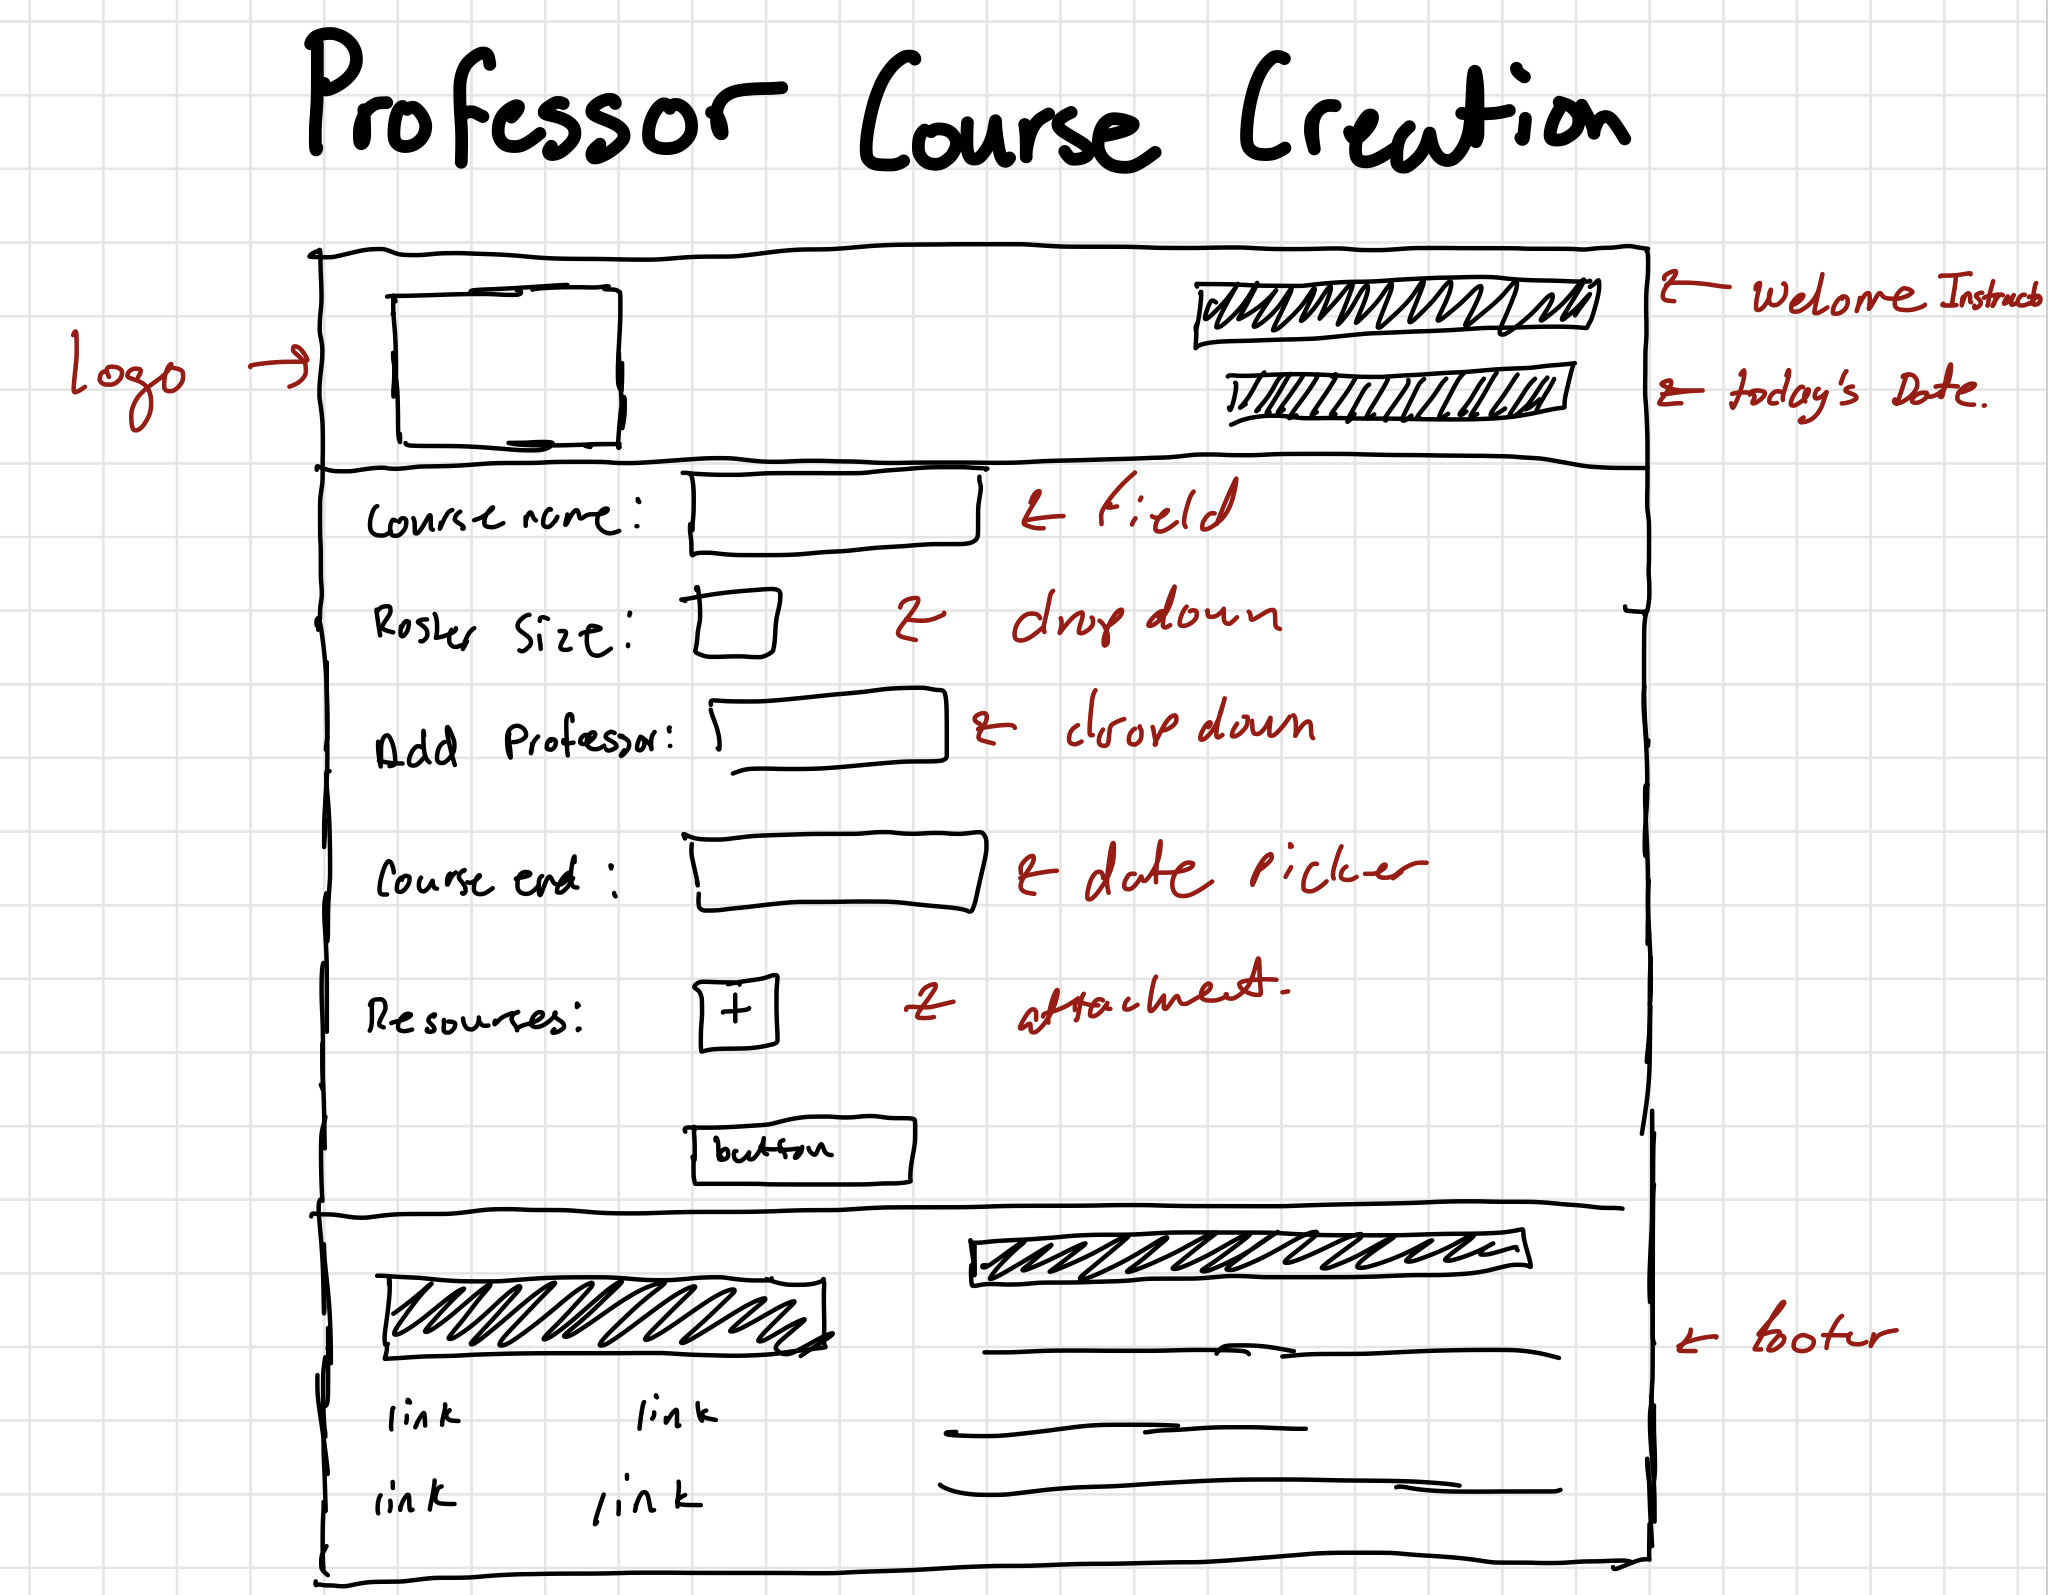 Professor Course Creation
Welome Instructo
Logo →
← today's Date.
Course name: ← field
Roster Size: ← drop down
Add Professor: ← drop down
Course end: ← date picker
Resources: + ← attachment.
button
← footer
link link
link link